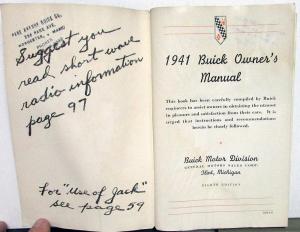 PARK AVENUE BUICK CO.
Suggest you
read short wave
radio information
page 97
For "Use of Jack"
see page 59
1941 Buick Owner's
Manual
This book has been carefully compiled by Buick
engineers to assist owners in obtaining the utmost
in pleasure and satisfaction from their cars. It is
urged that instructions and recommendations
herein be closely followed.
Buick Motor Division
GENERAL MOTORS SALES CORP.
Flint, Michigan
EIGHTH EDITION